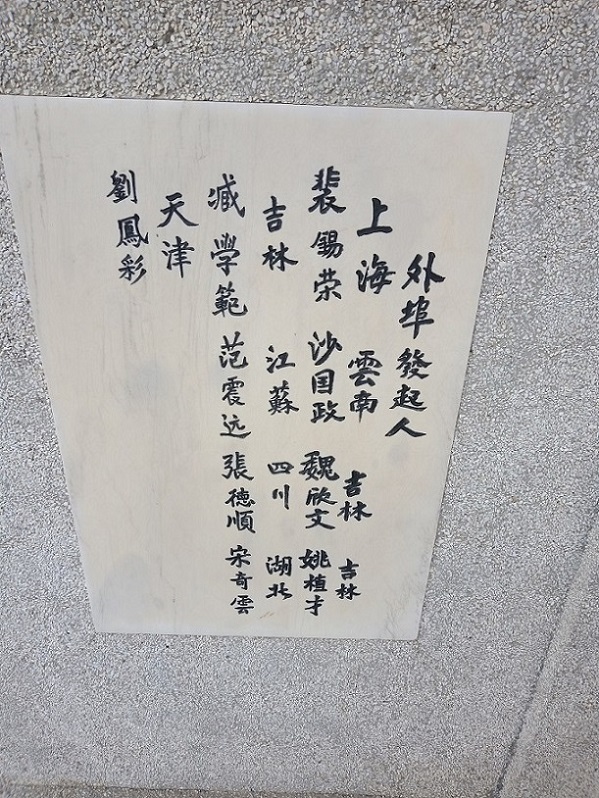 外埠發起人
上海 雲南 吉林 吉林
裴锡荣 沙国政 魏欣文 姚植才
吉林 江蘇 四川 湖北
臧學範 范震远 張德順 宋奇雲
天津
劉鳳彩